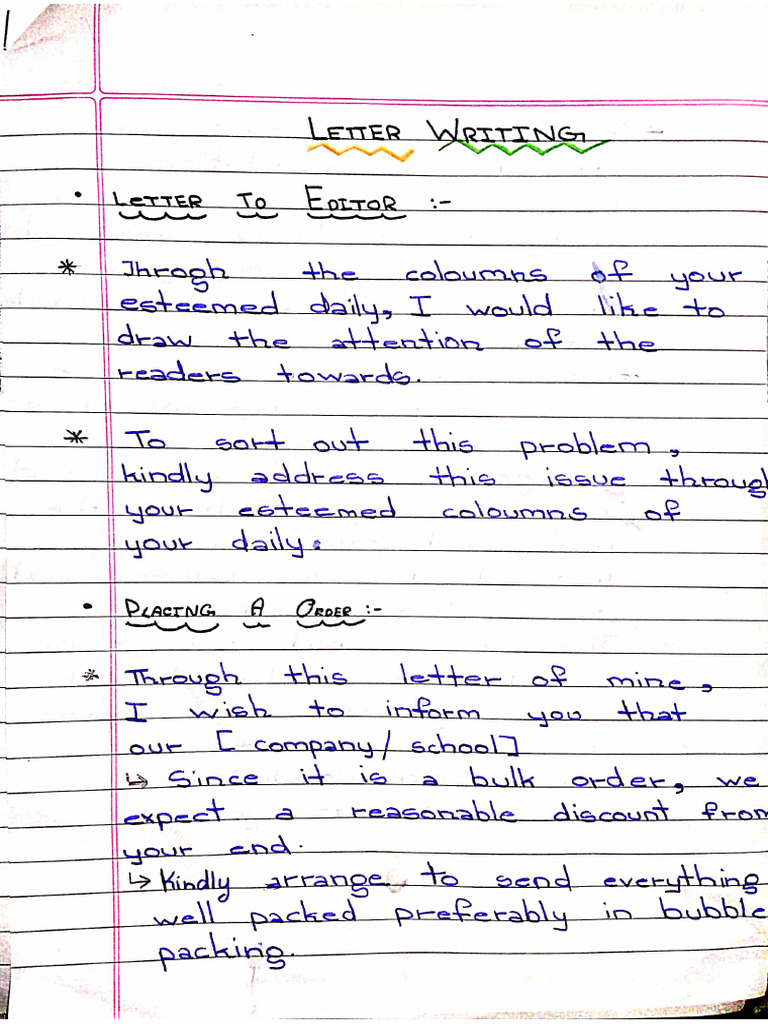 LETTER WRITING
• LETTER TO EDITOR :-
* Throgh the coloumns of your
esteemed daily, I would like to
draw the attention of the
readers towards.
* To sort out this problem,
kindly address this issue through
your esteemed coloumns of
your daily.
• PLACING A ORDER :-
* Through this letter of mine,
I wish to inform you that
our [company/school]
↳ Since it is a bulk order, we
expect a reasonable discount from
your end.
↳ Kindly arrange to send everything
well packed preferably in bubble
packing.